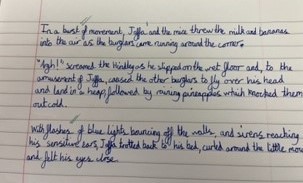 In a burst of movement, Jiffa and the mice threw the milk and bananas
into the air as the burglars came running around the corner.
"Argh!" screamed the Hindley as he slipped on the wet floor and, to the
amusement of Jiffa, caused the other burglars to fly over his head
and land in a heap, followed by raining pineapples which knocked them
out cold.
With flashes of blue lights bouncing off the walls, and sirens reaching
his sensitive ears, Jiffa trotted back to his bed, curled around the little mouse
and felt his eyes close.